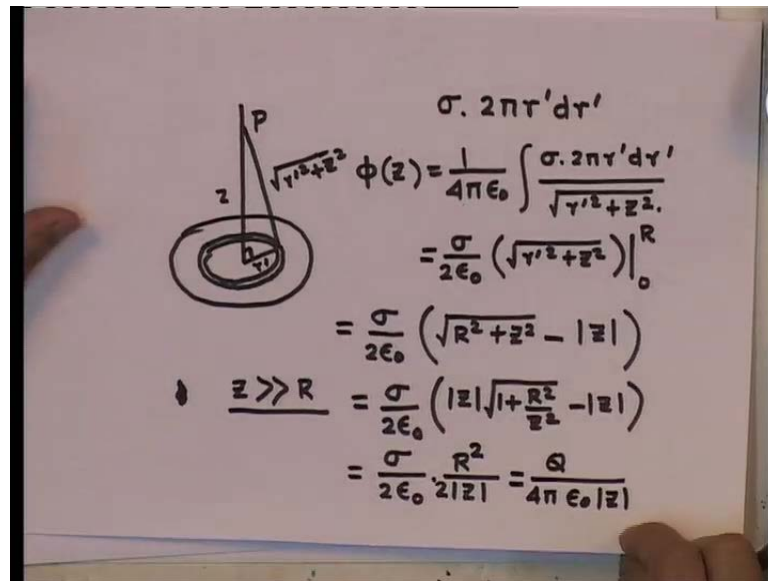 σ. 2πr'dr'
P
z
√r'²+z²
r'
φ(z) = 1/4πϵ₀ ∫ σ. 2πr'dr'/√r'²+z².
= σ/2ϵ₀ (√r'²+z²)|₀ᴿ
= σ/2ϵ₀ (√R²+z² − |z|)
z >> R = σ/2ϵ₀ (|z|√1+R²/z² − |z|)
= σ/2ϵ₀ . R²/2|z| = Q/4π ϵ₀|z|